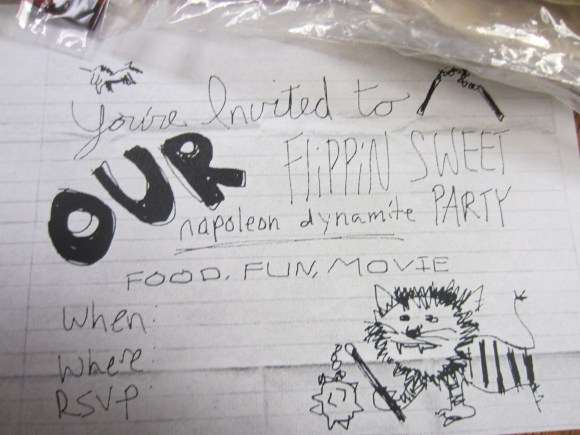 You're Invited to
OUR FLiPPiN SWEET
napoleon dynamite PARTY
FOOD, FUN, MOVIE
When:
Where:
RSVP: